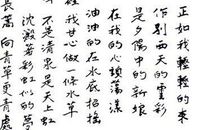 正如我輕輕的來
作別西天的雲彩
是夕陽中的新娘
在我的心頭蕩漾
油油的在水底招搖
我甘心做一條水草
清泉是天上虹
沈澱著彩虹似的夢
長篙向青草更青處